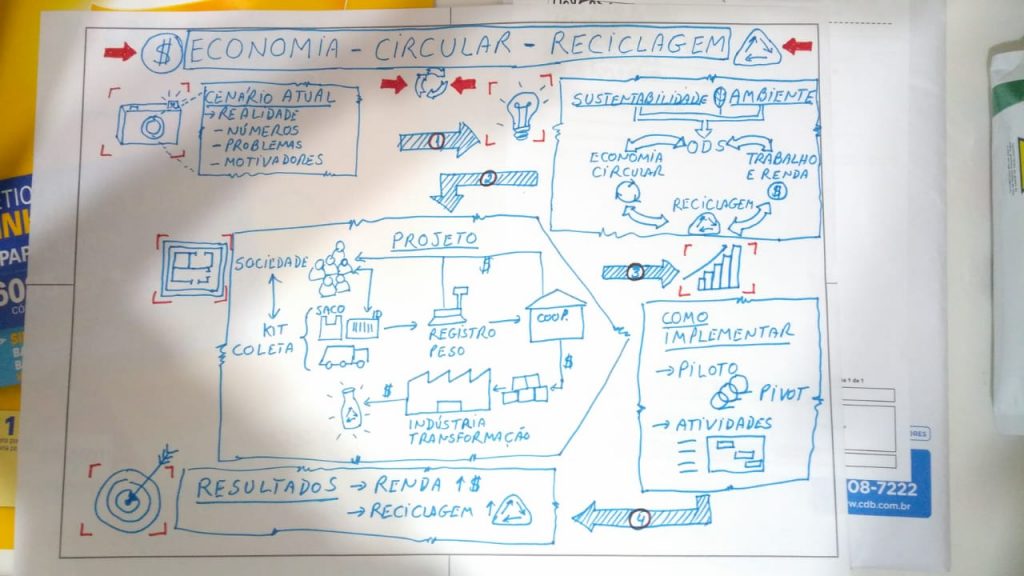 $ ECONOMIA - CIRCULAR - RECICLAGEM
CENÁRIO ATUAL
→ REALIDADE
- NÚMEROS
- PROBLEMAS
- MOTIVADORES
1
SUSTENTABILIDADE AMBIENTE
ODS
ECONOMIA
CIRCULAR
TRABALHO
E RENDA
$
RECICLAGEM
2
PROJETO
SOCIEDADE
$
KIT
COLETA
SACO
REGISTRO
PESO
COOP.
$
$
INDÚSTRIA
TRANSFORMAÇÃO
3
COMO
IMPLEMENTAR
→ PILOTO
PIVOT
→ ATIVIDADES
4
RESULTADOS → RENDA ↑ $
→ RECICLAGEM ↑
08-7222
www.cdb.com.br